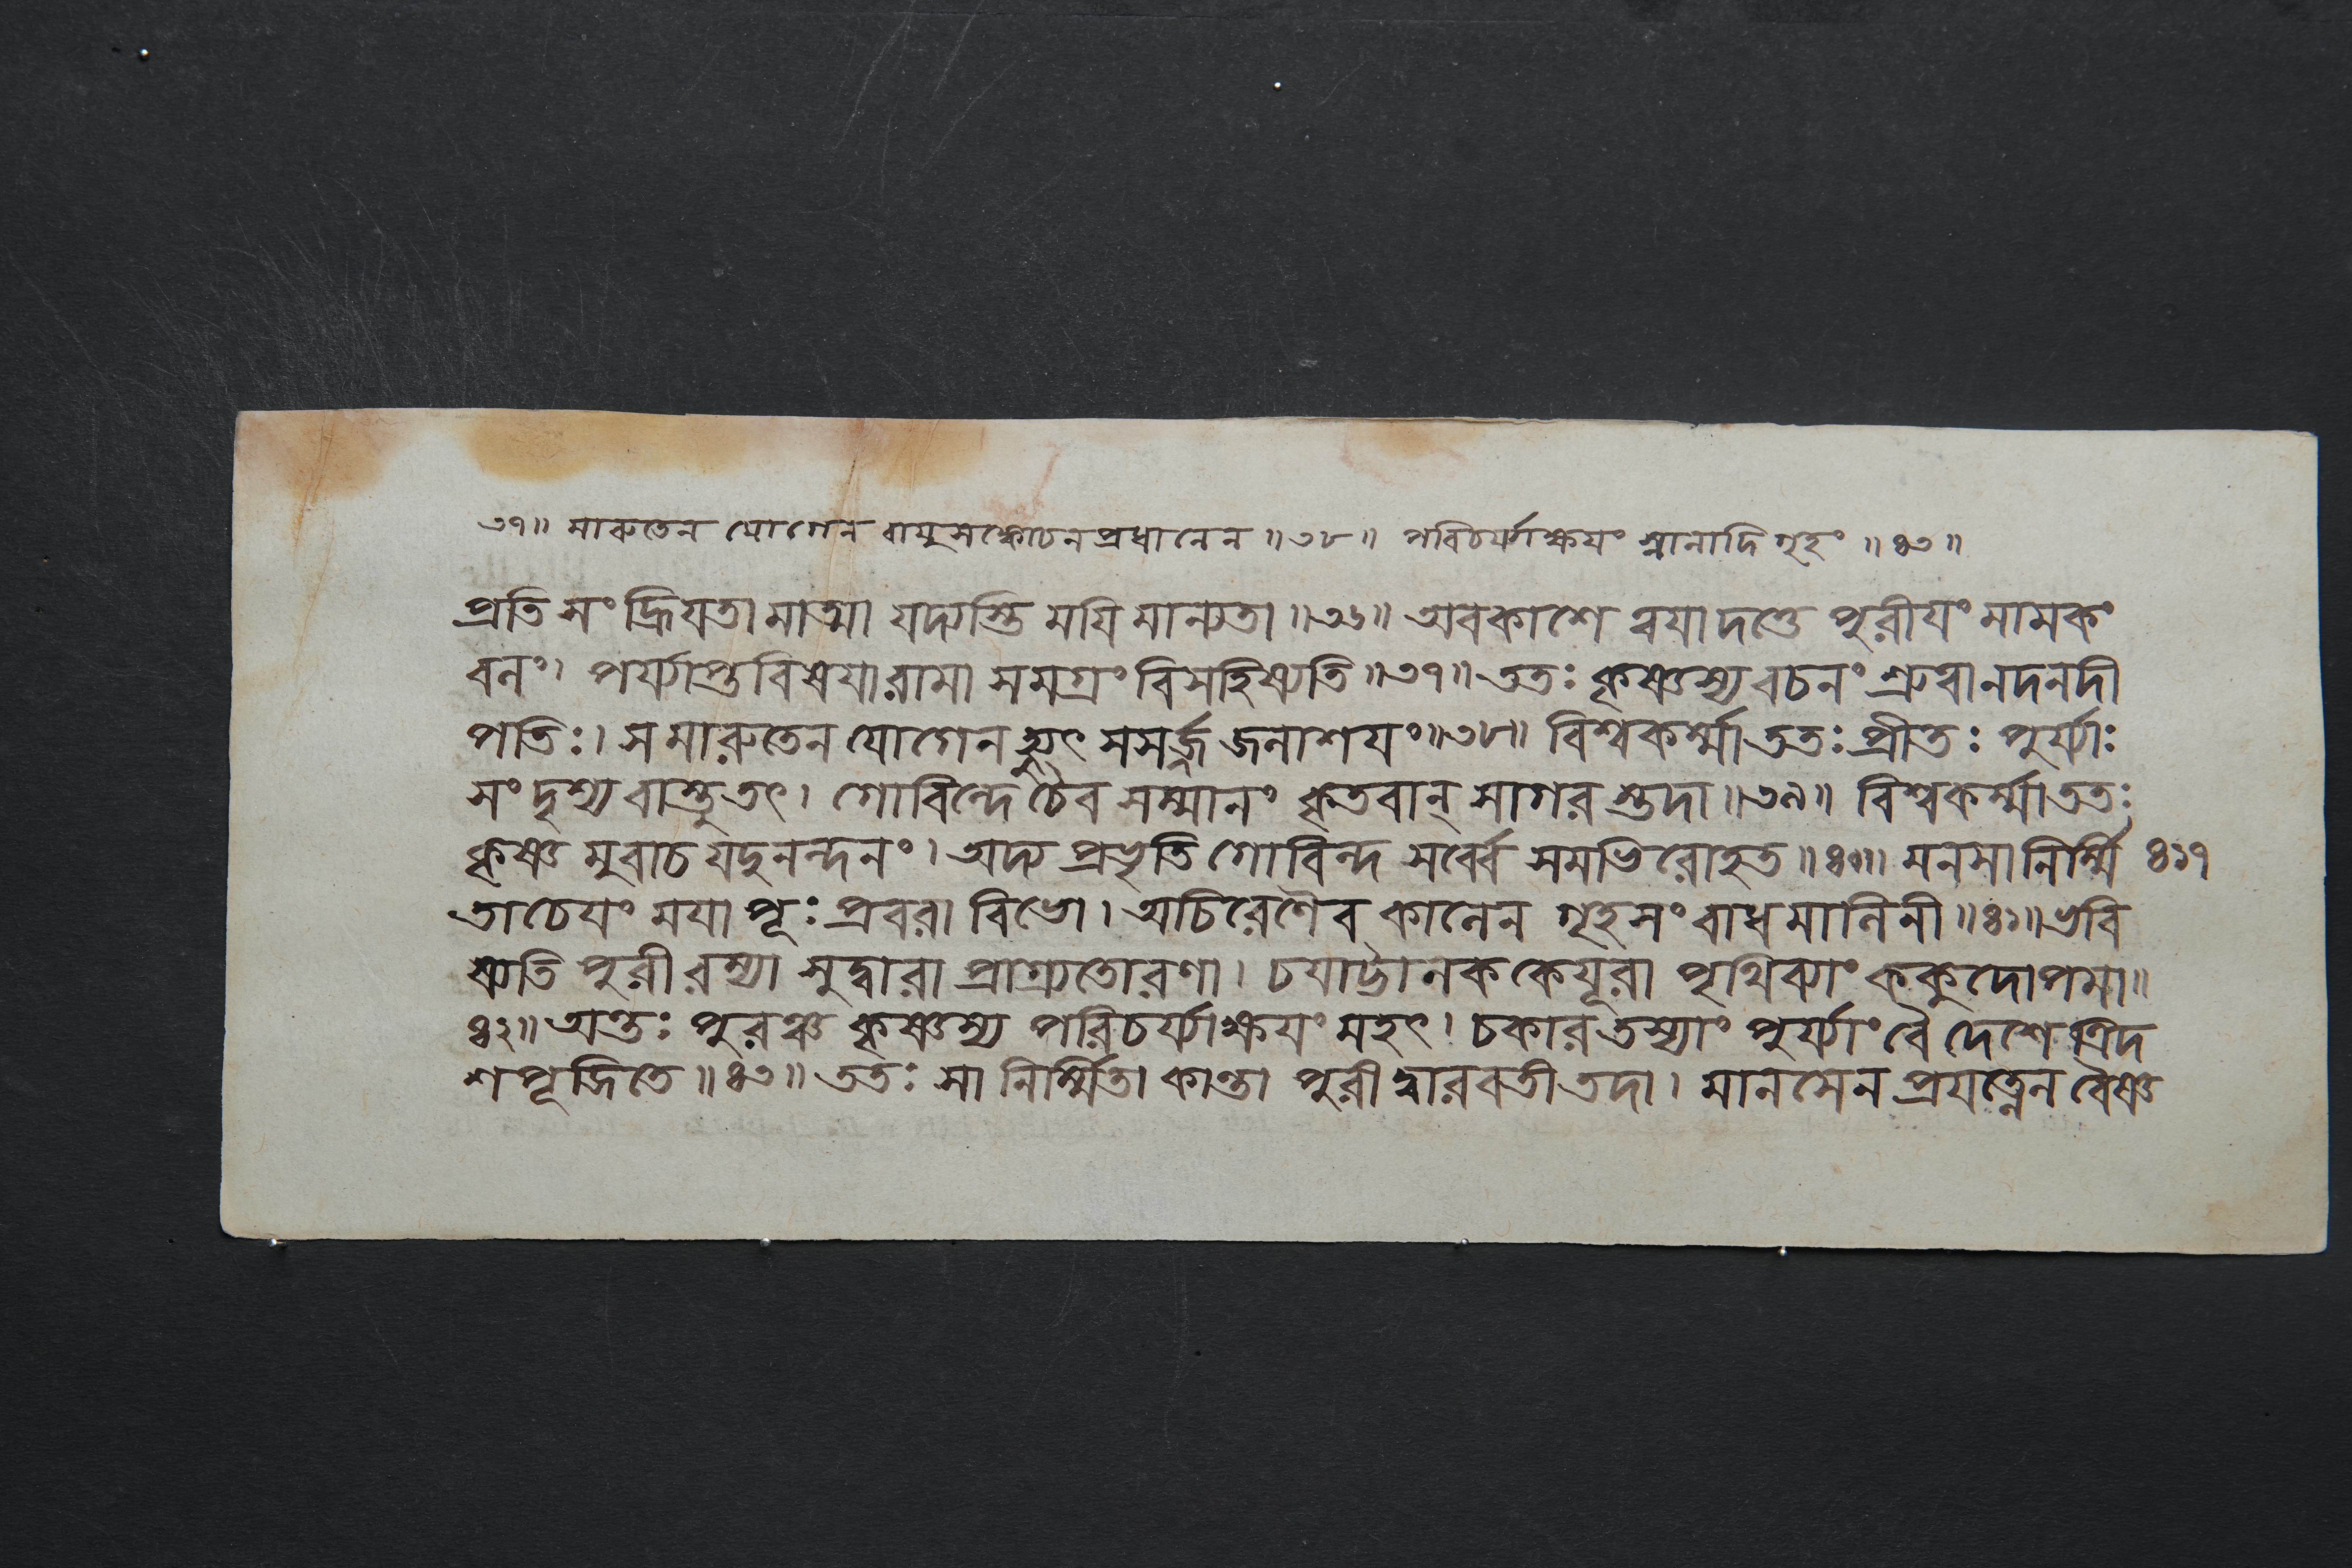 ৩৭॥ মারুতেন যোগেন বায়ুসঙ্কোচনপ্রধানেন ॥৩৮॥ পরিচর্য্যাক্ষয়ং স্নানাদি গৃহং ॥৪৩॥
প্রতি সংহ্রিয়তামাত্মা যদ্যস্তি ময়ি মান্যতা ॥৩৬॥ অবকাশে ত্বয়া দত্তে পুরীয়ং মামকং
বনং। পর্য্যাপ্তবিষয়ারামা সমগ্রং বিসহিষ্যতি ॥৩৭॥ ততঃ কৃষ্ণস্য বচনং শ্রুত্বা নদনদী
পতিঃ। স মারুতেন যোগেন উৎসসর্জ্জ জলাশয়ং ॥৩৮॥ বিশ্বকর্ম্মা ততঃ প্রীতঃ পুর্য্যাঃ
সংদৃশ্য বাস্তু তৎ। গোবিন্দে চৈব সম্মানং কৃতবান্ সাগরস্তদা ॥৩৯॥ বিশ্বকর্ম্মা ততঃ
কৃষ্ণমুবাচ যদুনন্দনং। অদ্য প্রভৃতি গোবিন্দ সর্ব্বে সমভিরোহত ॥৪০॥ মনসা নির্ম্মি ৪১৭
তা চেয়ং ময়া পূঃ প্রবরা বিভো। অচিরেণৈব কালেন গৃহসংবাধমালিনী ॥৪১॥ ভবি
ষ্যতি পুরী রম্যা সুদ্বারা প্রাগ্র্যতোরণা। চয়াট্টালককেয়ূরা পৃথিব্যাং ককুদোপমা॥
৪২॥ অন্তঃ পুরঞ্চ কৃষ্ণস্য পরিচর্য্যাক্ষয়ং মহৎ। চকার তস্যাং পুর্য্যাং বৈ দেশে ত্রিদ
শপূজিতে ॥৪৩॥ ততঃ সা নির্ম্মিতা কান্তা পুরী দ্বারবতী তদা। মানসেন প্রযত্নেন বৈষ্ণ